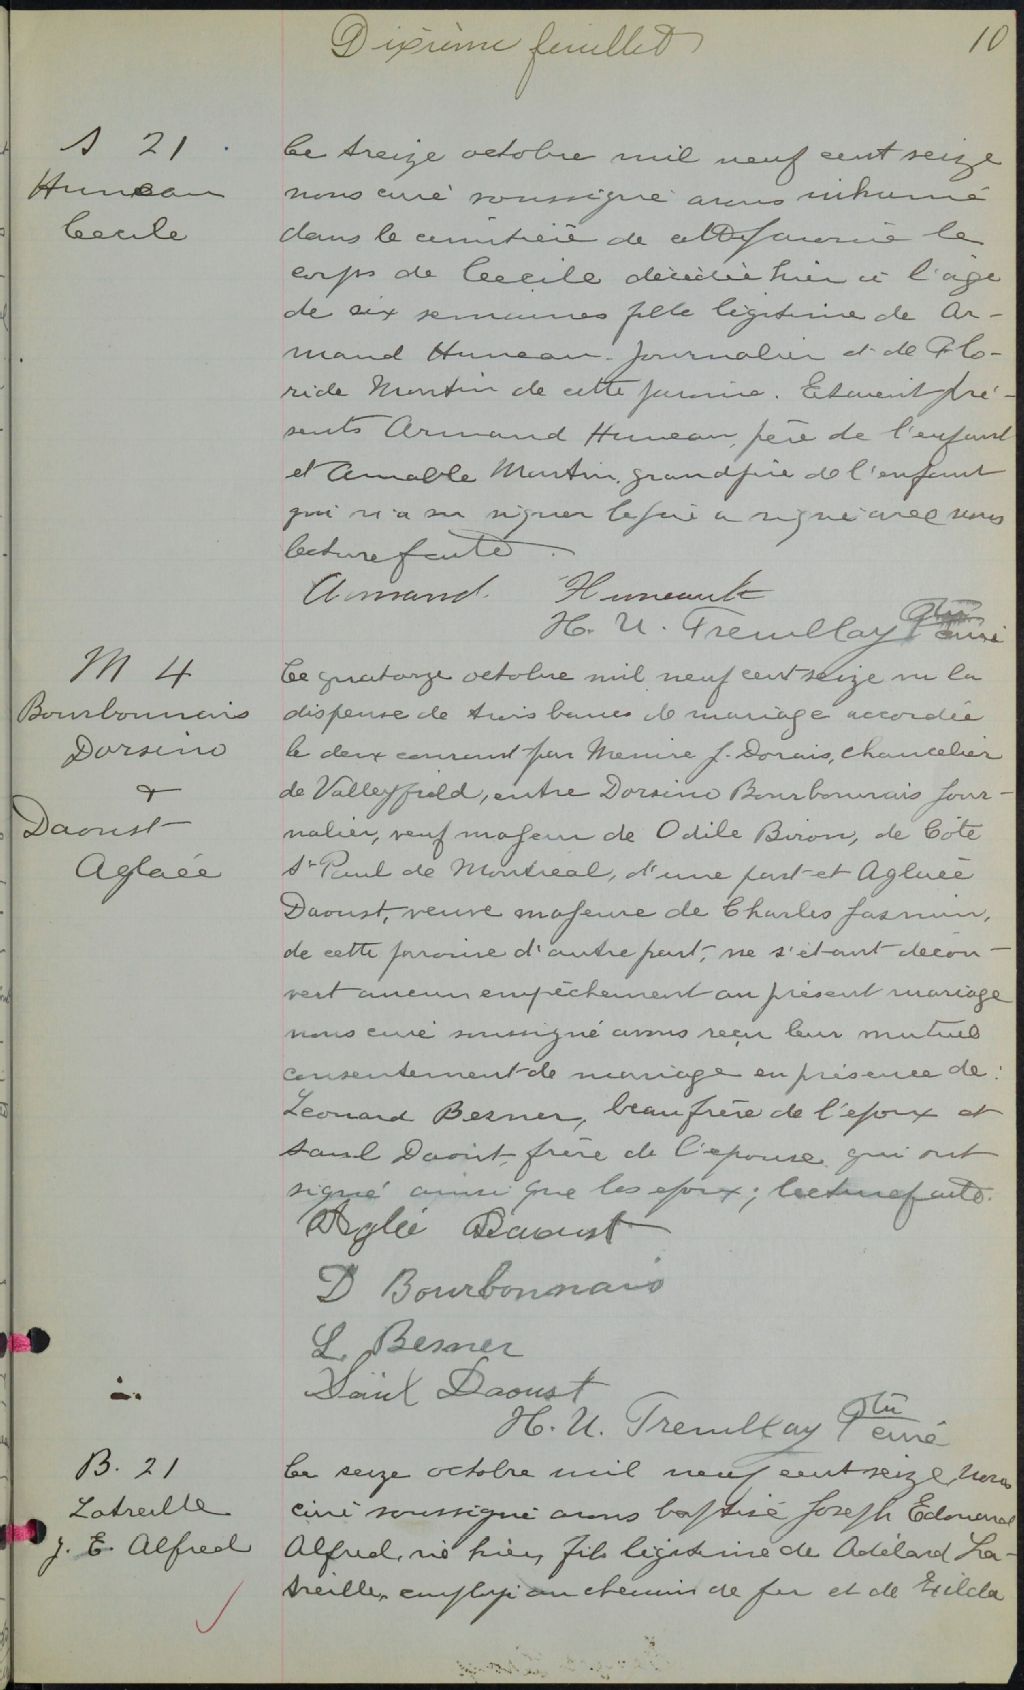 Dixième feuillet
10
S 21
Huneau
Cecile
Le treize octobre mil neuf cent seize
nous curé soussigné avons inhumé
dans le cimetière de cette paroisse le
corps de Cecile décédée hier à l'âge
de six semaines fille légitime de Ar-
mand Huneau journalier et de Flo-
ride Montin de cette paroisse. Etaient pré-
sents Armand Huneau, père de l'enfant
et Amable Montin, grandpère de l'enfant
qui n'a su signer le père a signé avec nous
lecture faite.
Armand Huneault
H. U. Tremblay Ptre
curé
M 4
Bourbonnais
Dorsino
+
Daoust
Aglaée
Le quatorze octobre mil neuf cent seize vu la
dispense de trois bancs de mariage accordée
le deux courant par Messire J. Dorais, chancelier
de Valleyfield, entre Dorsino Bourbonnais jour-
nalier, veuf majeur de Odile Biron, de Côte
St Paul de Montréal, d'une part et Aglaée
Daoust, veuve majeure de Charles Jasmin,
de cette paroisse d'autre part, ne s'étant décou-
vert aucun empêchement au présent mariage
nous curé soussigné avons reçu leur mutuel
consentement de mariage en présence de:
Leonard Besner, beaufrère de l'époux et
Saul Daoust, frère de l'épouse qui ont
signé ainsi que les époux; lecture faite.
Aglée Daoust
D Bourbonnais
L. Besner
Saül Daoust
H. U. Tremblay Ptre
curé
B. 21
Latreille
J. E. Alfred
Le seize octobre mil neuf cent seize, nous
curé soussigné avons baptisé Joseph Edouard
Alfred, né hier, fils légitime de Adélard La-
treille, employé au chemin de fer et de Exilda